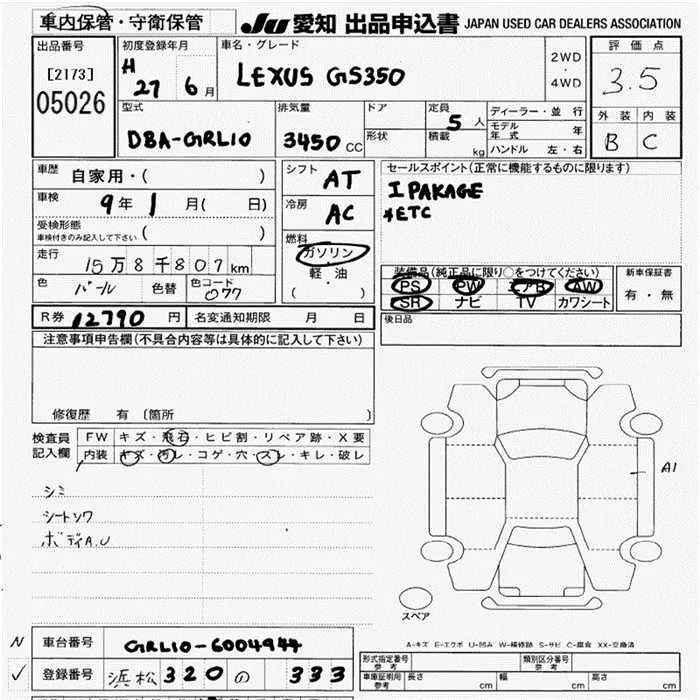 車内保管・守衛保管
JU 愛知 出品申込書 JAPAN USED CAR DEALERS ASSOCIATION
出品番号
[2173]
05026
初度登録年月
H 27 6月
車名・グレード
LEXUS GS350
2WD
・
4WD
評価点
3.5
外装 内装
B C
型式
DBA-GRL10
排気量
3450 CC
ドア
形状
定員 5人
積載 kg
ディーラー・並行
モデル年式 年
ハンドル 左・右
車歴 自家用・( )
車検 9年 1月( 日)
受検形態
車検付きのみ記入して下さい ( )
走行
15万8千807km
色 パール 色替 色コード 077
シフト AT
冷房 AC
燃料
ガソリン
・
軽・油
( )
セールスポイント(正常に機能するものに限ります)
I PAKAGE
*ETC
装備品(純正品に限り○をつけてください)
PS PW エアB AW
SR ナビ TV カワシート
新車保証書
有・無
R券 12790円 名変通知期限 月 日
後日品
注意事項申告欄(不具合内容等は具体的に記入して下さい)
修復歴 有 〔箇所 〕
検査員
記入欄
FW キズ・飛石・ヒビ割・リペア跡・X要
内装 キズ・汚レ・コゲ・穴・スレ・キレ・破レ
シミ
シートシワ
ボディA.U
A1
スペア
A-キズ E-エクボ U-凹み W-補修跡 S-サビ C-腐食 XX-交換済
N 車台番号 GRL10-6004944
✓ 登録番号 浜松 320 の 333
形式指定番号
参考
類別区分番号
参考
車庫証明用
参考
長さ cm 幅 cm 高さ cm